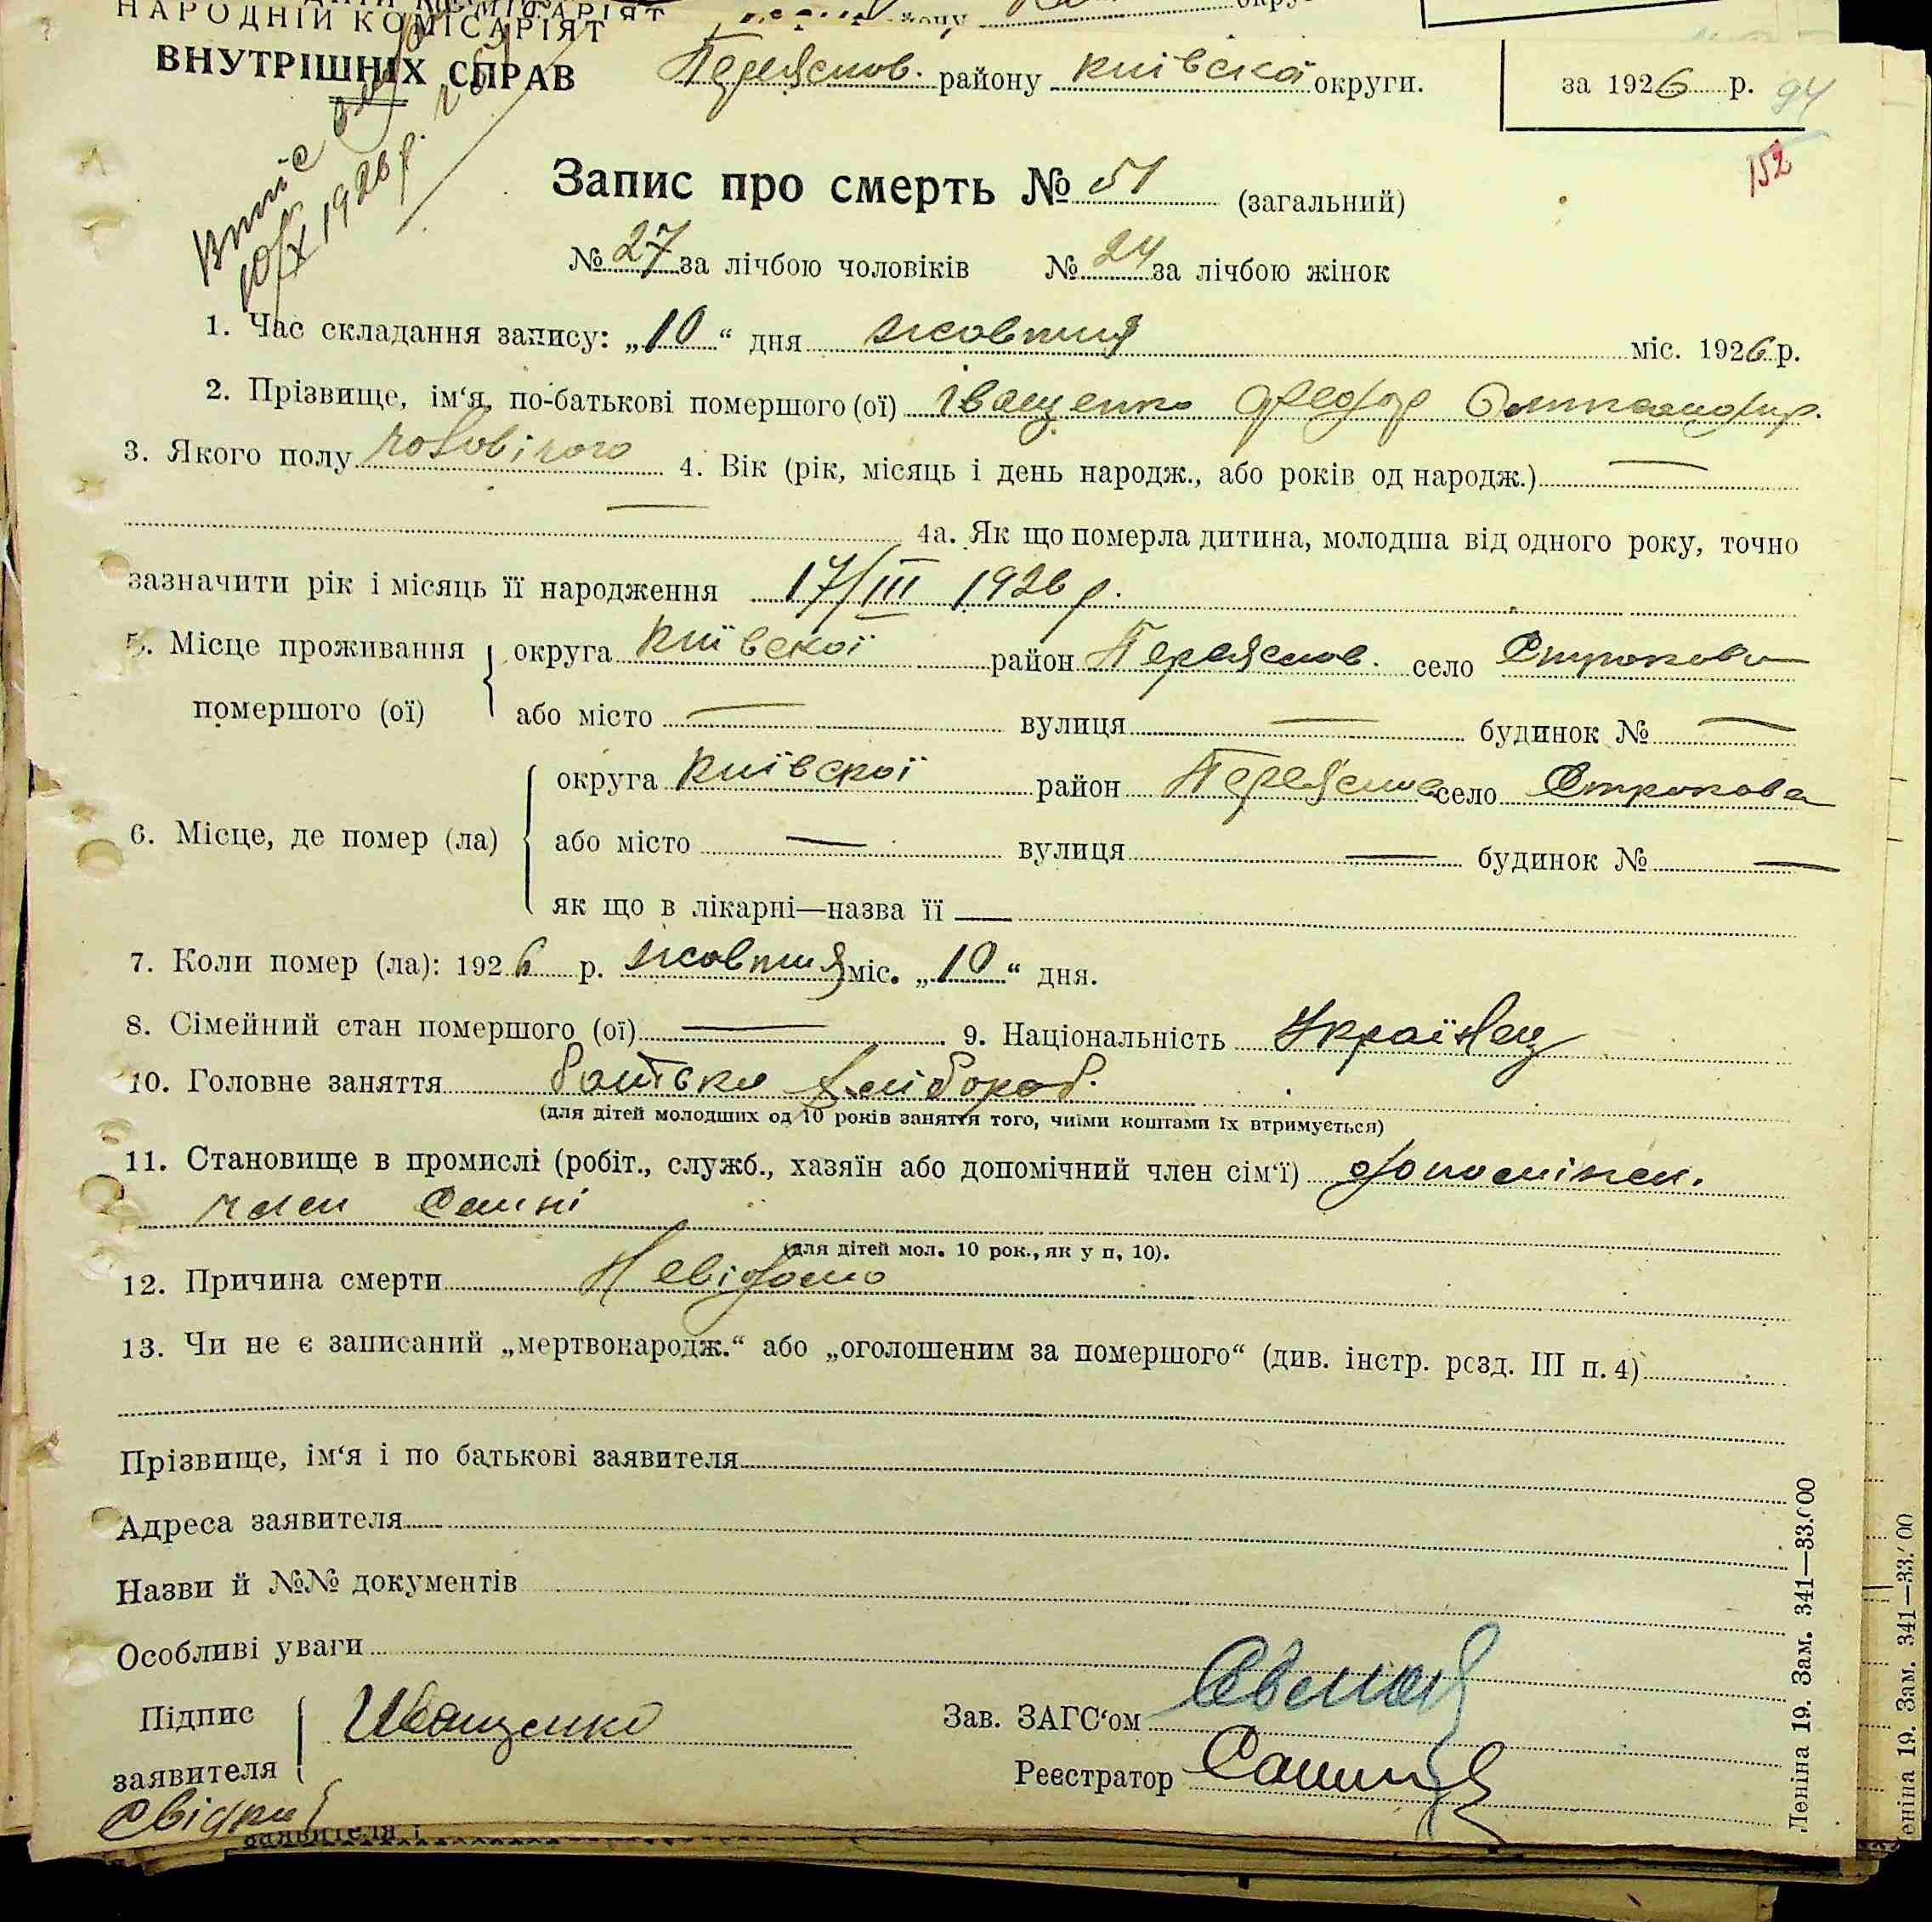 НАРОДНІЙ КОМІСАРІЯТ
ВНУТРІШНІХ СПРАВ
Переяслов. району київскої округи.
за 1926 р. 94
152
10/X 1926 р.
Запис про смерть № 51 (загальний)
№ 27 за лічбою чоловіків № 24 за лічбою жінок
1. Час складання запису: „10“ дня жовтня міс. 1926 р.
2. Прізвище, ім‘я, по-батькові помершого (ої) Іващенко Федор
3. Якого полу чоловічого 4. Вік (рік, місяць і день народж., або років од народж.) —
— 4а. Як що померла дитина, молодша від одного року, точно
зазначити рік і місяць її народження 17/III 1926 р.
5. Місце проживання округа київскої район Переяслов. село Строкова
помершого (ої) або місто — вулиця — будинок № —
округа київскої район Переяслов село Строкова
6. Місце, де помер (ла) або місто — вулиця — будинок № —
як що в лікарні—назва її —
7. Коли помер (ла): 1926 р. жовтня міс. „10“ дня.
8. Сімейний стан помершого (ої) — 9. Національність Україنец
10. Головне заняття батьки хлібороб.
(для дітей молодших од 10 років заняття того, чиїми коштами їх втримується)
11. Становище в промислі (робіт., служб., хазяїн або допомічний член сім‘ї) допоміжн.
член
(для дітей мол. 10 рок., як у п, 10).
12. Причина смерти Невідомо
13. Чи не є записаний „мертвонародж.“ або „оголошеним за помершого“ (див. інстр. розд. III п. 4)
Прізвище, ім‘я і по батькові заявителя
Адреса заявителя
Назви й №№ документів
Особливі уваги
Підпис заявителя Иващенко
Зав. ЗАГС‘ом
Реєстратор
Свідки
заявителя
Леніна 19. Зам. 341—33.000
еніна 19. Зам. 341—33.000